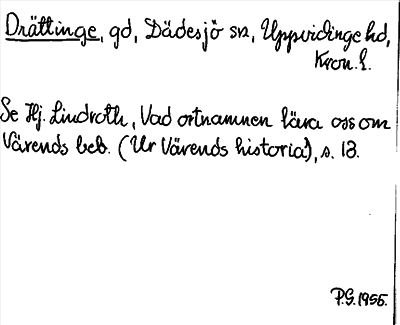 Drättinge, gd, Dädesjö sn, Uppvidinge hd,
Kron. l.
Se Hj. Lindroth, Vad ortnamnen lära oss om
Värends beb. (Ur Värends historia), s. 13.
P.G. 1956.